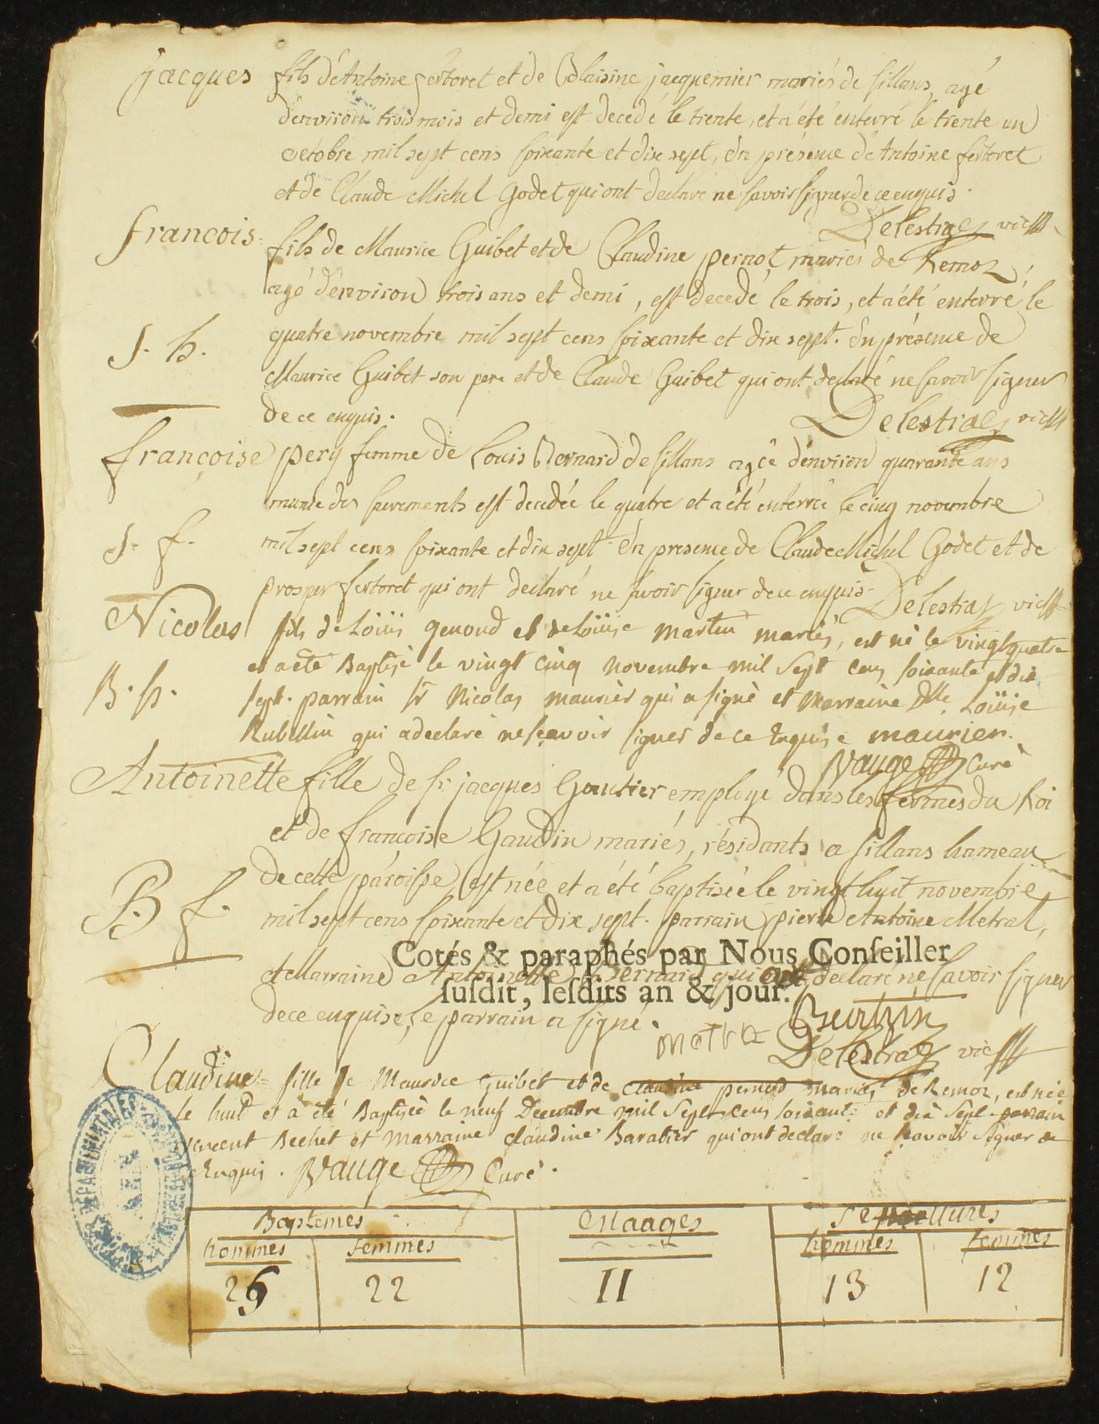 jacques fils d'Antoine fertoret et de Claisine jacquemier mariés de sillans, agé
d'environ trois mois et demi est decedé le trente, et a été enterré le trente un
octobre mil sept cens soixante et dix sept, en présence d'Antoine fertoret
et de Claude Michel Godet qui ont declaré ne savoir signer de ce enquis.
Delestraz vic
francois fils de Maurice Guibet et de Claudine pernot mariés de Remoz,
agé d'environ trois ans et demi, est decedé le trois, et a été enterré le
S. h. quatre novembre mil sept cens soixante et dix sept. En présence de
Maurice Guibet son pere et de Claude Guibet qui ont declaré ne savoir signer
de ce enquis.
Delestraz vic
françoise pery femme de Louis Bernard de sillans agée d'environ quarante ans
munie des sacrements est decedée le quatre et a été enterrée le cinq novembre
S. f. mil sept cens soixante et dix sept. En presence de Claude Michel Godet et de
prosper fertoret qui ont declaré ne savoir signer de ce enquis.
Delestraz vic
Nicolas fils de Loüis genoud et de Loüise Martin mariés, est né le vingt quatre
et a eté Baptisé le vingt cinq novembre mil Sept cens soixante et dix
B. h. sept. parrain sr Nicolas maurier qui a signé et Marraine Dlle Loüise
Rubellin qui a declaré ne sçavoir signer de ce Enquise maurier.
Vauge Curé
Antoinette fille de sr jacques Gautier employé dans les fermes du Roi
et de francoise Gaudin mariés, résidants a sillans hameau
de cette paroisse, est née et a été baptisée le vingt huit novembre
B. f. mil sept cens soixante et dix sept. parrain pierre Antoine Metral,
Cotés & paraphés par Nous Conſeiller
et Marraine Antoinette Bernard qui a declaré ne savoir signer
ſuſdit, leſdits an & jour.
de ce enquise, le parrain a signé.
Delestraz vic
Claudine fille de Maurice Guibet et de Claudine pernod mariés de Remoz, est née
le huit et a été Baptisée le neuf Decembre mil Sept cens soixante et dix Sept parrain
Bechet et Marraine Claudine Baratier qui ont declaré ne sçavoir signer de
Enquis. Vauge Curé.
Baptemes Mariages Sepultures
hommes femmes hommes femmes
26 22 11 13 12